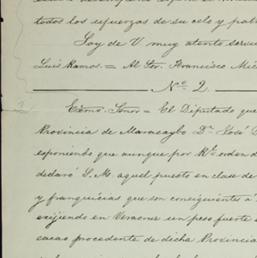 todos los esfuerzos de su celo y
Soy de V. muy atento
Luis Ramos. = Al Sor. Francisco
Nº 2
Exmo. Señor = El Diputado que
Provincia de Maracaybo Dn. José
esponiendo que aunque por Rl. orden
declaró S. M. aquel puerto en clase de
y franquicias que son consiguientes á
exijiendo en Veracruz un peso fuerte
sacas procedente de dicha Provincia